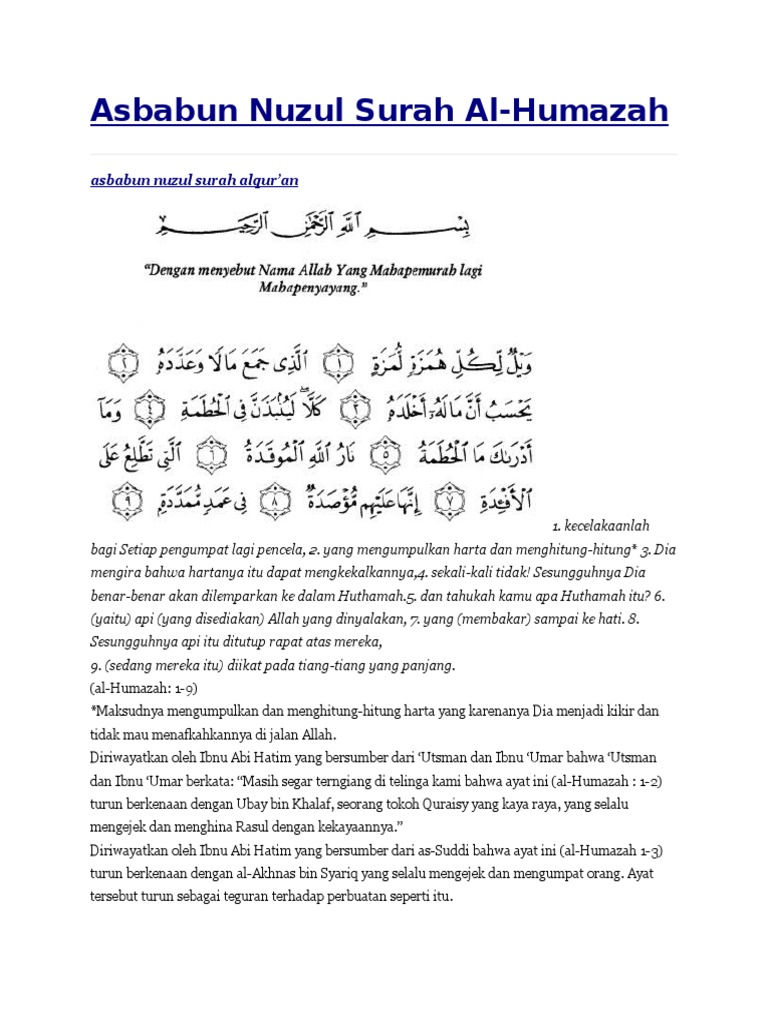 Asbabun Nuzul Surah Al-Humazah
asbabun nuzul surah alqur’an
بِسْمِ اللَّهِ الرَّحْمَٰنِ الرَّحِيمِ
“Dengan menyebut Nama Allah Yang Mahapemurah lagi
Mahapenyayang.”
وَيْلٌ لِّكُلِّ هُمَزَةٍ لُّمَزَةٍ ١ الَّذِي جَمَعَ مَالًا وَعَدَّدَهُ ٢
يَحْسَبُ أَنَّ مَالَهُ أَخْلَدَهُ ٣ كَلَّا ۖ لَيُنبَذَنَّ فِي الْحُطَمَةِ ٤ وَمَا
أَدْرَاكَ مَا الْحُطَمَةُ ٥ نَارُ اللَّهِ الْمُوقَدَةُ ٦ الَّتِي تَطَّلِعُ عَلَى
الْأَفْئِدَةِ ٧ إِنَّهَا عَلَيْهِم مُّؤْصَدَةٌ ٨ فِي عَمَدٍ مُّمَدَّدَةٍ ٩
1. kecelakaanlah
bagi Setiap pengumpat lagi pencela, 2. yang mengumpulkan harta dan menghitung-hitung* 3. Dia
mengira bahwa hartanya itu dapat mengkekalkannya,4. sekali-kali tidak! Sesungguhnya Dia
benar-benar akan dilemparkan ke dalam Huthamah.5. dan tahukah kamu apa Huthamah itu? 6.
(yaitu) api (yang disediakan) Allah yang dinyalakan, 7. yang (membakar) sampai ke hati. 8.
Sesungguhnya api itu ditutup rapat atas mereka,
9. (sedang mereka itu) diikat pada tiang-tiang yang panjang.
(al-Humazah: 1-9)
*Maksudnya mengumpulkan dan menghitung-hitung harta yang karenanya Dia menjadi kikir dan
tidak mau menafkahkannya di jalan Allah.
Diriwayatkan oleh Ibnu Abi Hatim yang bersumber dari ‘Utsman dan Ibnu ‘Umar bahwa ‘Utsman
dan Ibnu ‘Umar berkata: “Masih segar terngiang di telinga kami bahwa ayat ini (al-Humazah : 1-2)
turun berkenaan dengan Ubay bin Khalaf, seorang tokoh Quraisy yang kaya raya, yang selalu
mengejek dan menghina Rasul dengan kekayaannya.”
Diriwayatkan oleh Ibnu Abi Hatim yang bersumber dari as-Suddi bahwa ayat ini (al-Humazah 1-3)
turun berkenaan dengan al-Akhnas bin Syariq yang selalu mengejek dan mengumpat orang. Ayat
tersebut turun sebagai teguran terhadap perbuatan seperti itu.